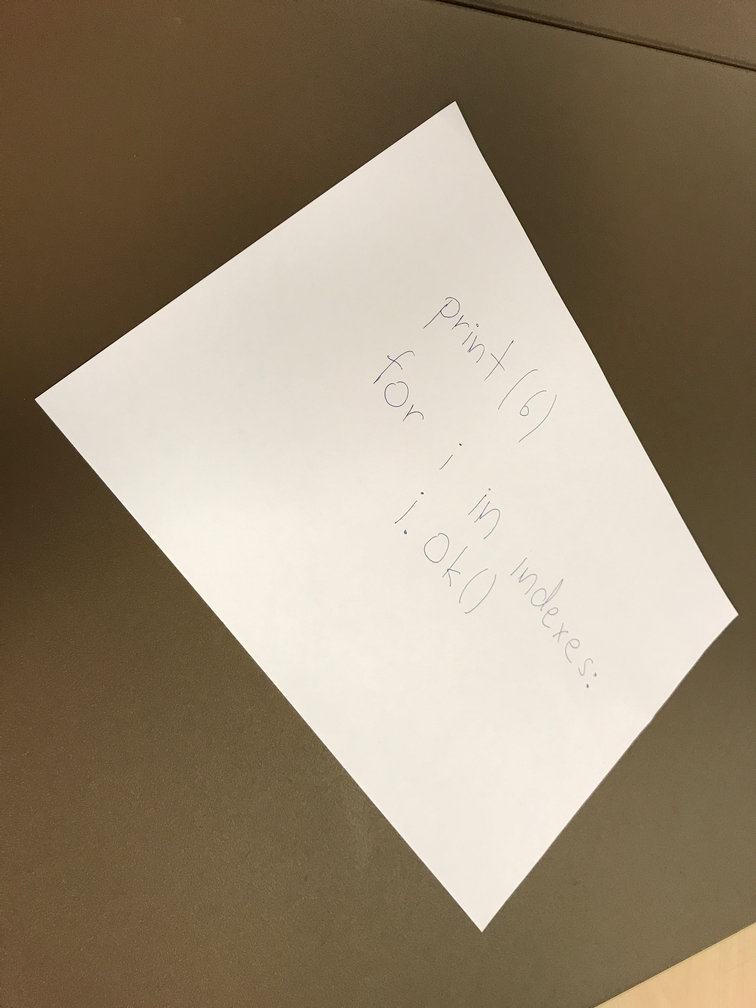 print(6)
for i in indexes:
    i.ok()